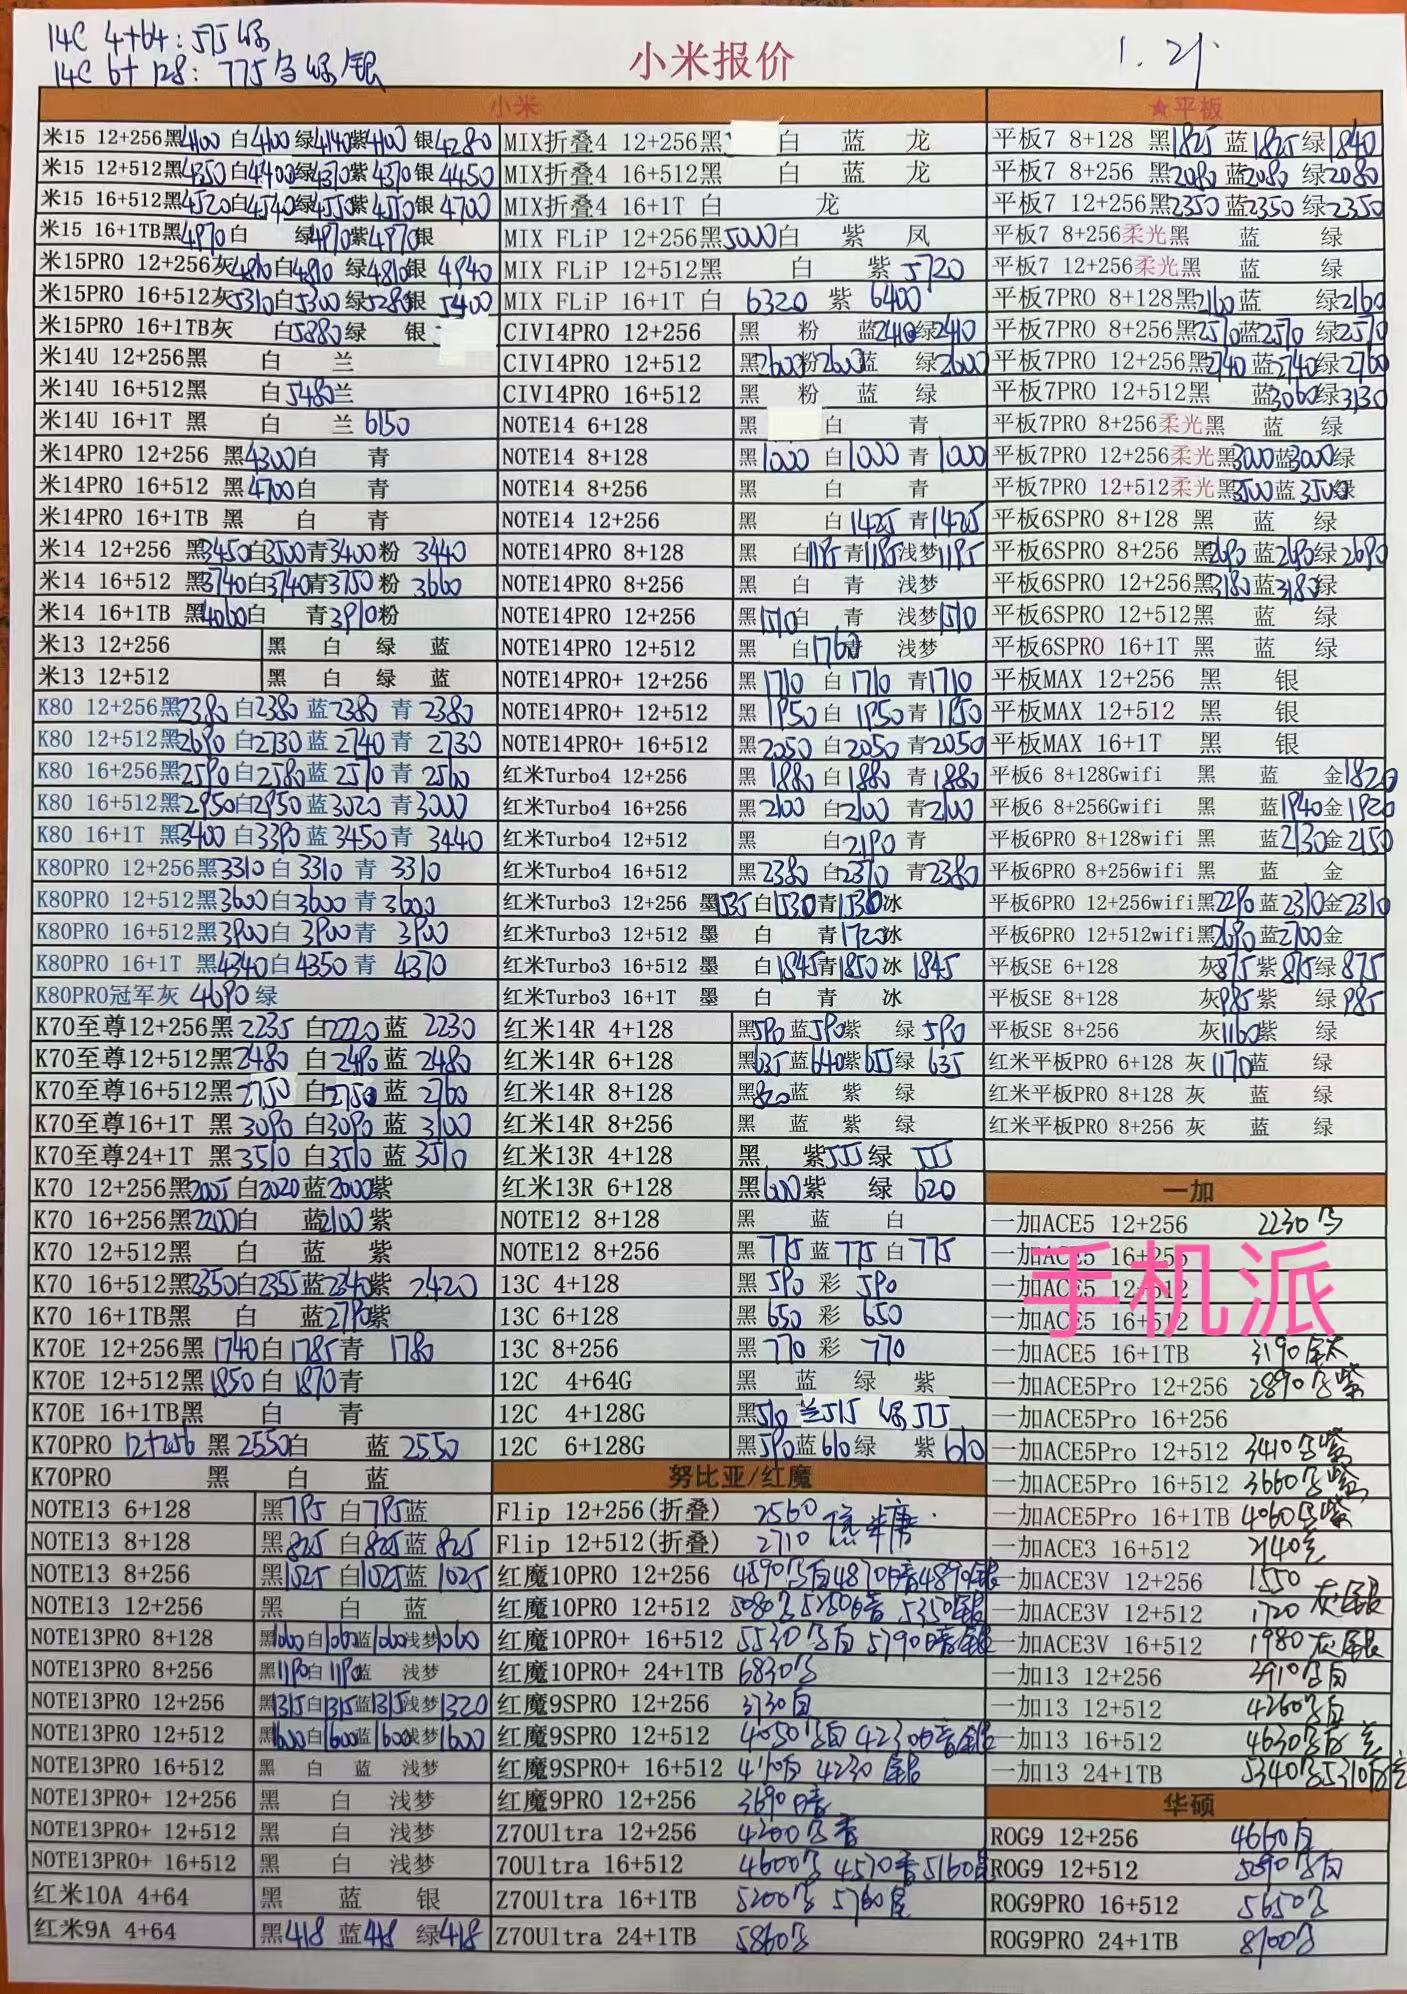 14C 4+64: 575 绿
14C 6+128: 775 黑 绿 银
小米报价
1.21
小米
米15 12+256黑4100 白4100 绿4140紫4100 银4280
米15 12+512黑4350 白4400绿4370紫4370 银4450
米15 16+512黑4520白4540绿4550紫4550银 4700
米15 16+1TB黑4970白 绿4970紫4970银
米15PRO 12+256灰4810白4810 绿4810银 4940
米15PRO 16+512灰5310白5300 绿5280银 5400
米15PRO 16+1TB灰 白5880绿 银
米14U 12+256黑 白 兰
米14U 16+512黑 白5480兰
米14U 16+1T 黑 白 兰 6150
米14PRO 12+256 黑4300白 青
米14PRO 16+512 黑4700白 青
米14PRO 16+1TB 黑 白 青
米14 12+256 黑3450白3500青3400粉 3440
米14 16+512 黑3740白3740青3750 粉 3660
米14 16+1TB 黑4060白 青3910粉
米13 12+256 黑 白 绿 蓝
米13 12+512 黑 白 绿 蓝
K80 12+256黑2380 白2380 蓝2380 青 2380
K80 12+512黑2690 白2730 蓝2740 青 2730
K80 16+256黑2590 白2580蓝2570 青 2560
K80 16+512黑2950白2950 蓝3020 青3000
K80 16+1T 黑3400 白3390 蓝3450 青 3440
K80PRO 12+256黑3310 白 3310 青 3310
K80PRO 12+512黑3600白3600 青3600
K80PRO 16+512黑3900白 3900青 3900
K80PRO 16+1T 黑4340白4350 青 4370
K80PRO冠军灰 4690 绿
K70至尊12+256黑 2235 白2220 蓝 2230
K70至尊12+512黑2480 白2490 蓝 2480
K70至尊16+512黑2750 白2750 蓝 2760
K70至尊16+1T 黑3090 白3090 蓝3100
K70至尊24+1T 黑3510 白3510 蓝3510
K70 12+256黑2005 白2020蓝2000紫
K70 16+256黑2200白 蓝2100紫
K70 12+512黑 白 蓝 紫
K70 16+512黑2350白2355蓝2340紫 2420
K70 16+1TB黑 白 蓝2790紫
K70E 12+256黑1740白1785青 1780
K70E 12+512黑1850白 1870青
K70E 16+1TB黑 白 青
K70PRO 12+256 黑2550白 蓝2550
K70PRO 黑 白 蓝
NOTE13 6+128 黑795 白795蓝
NOTE13 8+128 黑825 白825蓝 825
NOTE13 8+256 黑1025 白1025蓝 1025
NOTE13 12+256 黑 白 蓝
NOTE13PRO 8+128 黑1060白1060蓝1060浅梦1060
NOTE13PRO 8+256 黑1190白1190蓝 浅梦
NOTE13PRO 12+256 黑1315白1315蓝1315浅梦1320
NOTE13PRO 12+512 黑1600白1600蓝1600浅梦1600
NOTE13PRO 16+512 黑 白 蓝 浅梦
NOTE13PRO+ 12+256 黑 白 浅梦
NOTE13PRO+ 12+512 黑 白 浅梦
NOTE13PRO+ 16+512 黑 白 浅梦
红米10A 4+64 黑 蓝 银
红米9A 4+64 黑418 蓝418 绿418
MIX折叠4 12+256黑 白 蓝 龙
MIX折叠4 16+512黑 白 蓝 龙
MIX折叠4 16+1T 白 龙
MIX FLiP 12+256黑5000白 紫 凤
MIX FLiP 12+512黑 白 紫5720
MIX FLiP 16+1T 白 6320 紫 6400
CIVI4PRO 12+256 黑 粉 蓝2410绿2410
CIVI4PRO 12+512 黑2600粉2600蓝 绿2600
CIVI4PRO 16+512 黑 粉 蓝 绿
NOTE14 6+128 黑 白 青
NOTE14 8+128 黑1000 白1000 青 1000
NOTE14 8+256 黑 白 青
NOTE14 12+256 黑 白1425 青1425
NOTE14PRO 8+128 黑 白1195青1195浅梦1195
NOTE14PRO 8+256 黑 白 青 浅梦
NOTE14PRO 12+256 黑1510白 青 浅梦1510
NOTE14PRO 12+512 黑 白1760青 浅梦
NOTE14PRO+ 12+256 黑1710 白 1710 青1710
NOTE14PRO+ 12+512 黑 1950白 1950青 1950
NOTE14PRO+ 16+512 黑2050 白2050 青2050
红米Turbo4 12+256 黑 1880 白1880 青1880
红米Turbo4 16+256 黑2100 白2100 青2100
红米Turbo4 12+512 黑 白2190 青
红米Turbo4 16+512 黑2380 白2370 青2380
红米Turbo3 12+256 墨1535 白1530青1530冰
红米Turbo3 12+512 墨 白 青1720冰
红米Turbo3 16+512 墨 白1845青1850 冰 1845
红米Turbo3 16+1T 墨 白 青 冰
红米14R 4+128 黑590 蓝590紫 绿 590
红米14R 6+128 黑635 蓝640紫655绿 635
红米14R 8+128 黑820 蓝 紫 绿
红米14R 8+256 黑 蓝 紫 绿
红米13R 4+128 黑 紫555绿 555
红米13R 6+128 黑600紫 绿 620
NOTE12 8+128 黑 蓝 白
NOTE12 8+256 黑775 蓝775 白775
13C 4+128 黑 590 彩 590
13C 6+128 黑 650 彩 650
13C 8+256 黑 770 彩 770
12C 4+64G 黑 蓝 绿 紫
12C 4+128G 黑510 兰515 绿515
12C 6+128G 黑590蓝610绿 紫610
努比亚/红魔
Flip 12+256(折叠) 2560
Flip 12+512(折叠) 2710
红魔10PRO 12+256 4590黑白4870暗4890银
红魔10PRO 12+512 5080黑5250暗 5350银
红魔10PRO+ 16+512 5530黑白 5790暗银
红魔10PRO+ 24+1TB 6830黑
红魔9SPRO 12+256 3730白
红魔9SPRO 12+512 4050黑白 4230暗银
红魔9SPRO+ 16+512 4160白 4230 银
红魔9PRO 12+256 3690暗
Z70Ultra 12+256 4200黑
70Ultra 16+512 4600黑 4570 5160
Z70Ultra 16+1TB 5200黑 5760
Z70Ultra 24+1TB 5860黑
★平板
平板7 8+128 黑1825 蓝1825绿1840
平板7 8+256 黑2080 蓝2080 绿2080
平板7 12+256黑2350 蓝2350 绿2350
平板7 8+256柔光黑 蓝 绿
平板7 12+256柔光黑 蓝 绿
平板7PRO 8+128黑2160蓝 绿2160
平板7PRO 8+256黑2570蓝2570 绿2570
平板7PRO 12+256黑2740 蓝2740绿2760
平板7PRO 12+512黑 蓝3060绿3130
平板7PRO 8+256柔光黑 蓝 绿
平板7PRO 12+256柔光黑3000蓝3000绿
平板7PRO 12+512柔光黑3500蓝3500绿
平板6SPRO 8+128 黑 蓝 绿
平板6SPRO 8+256 黑2690 蓝2690绿2690
平板6SPRO 12+256黑3180蓝3180绿
平板6SPRO 12+512黑 蓝 绿
平板6SPRO 16+1T 黑 蓝 绿
平板MAX 12+256 黑 银
平板MAX 12+512 黑 银
平板MAX 16+1T 黑 银
平板6 8+128Gwifi 黑 蓝 金1820
平板6 8+256Gwifi 黑 蓝1940金1920
平板6PRO 8+128wifi 黑 蓝2130金2150
平板6PRO 8+256wifi 黑 蓝 金
平板6PRO 12+256wifi黑2290蓝2310金2310
平板6PRO 12+512wifi黑2690蓝2700金
平板SE 6+128 灰875 紫875绿875
平板SE 8+128 灰985紫 绿985
平板SE 8+256 灰1160紫 绿
红米平板PRO 6+128 灰1170蓝 绿
红米平板PRO 8+128 灰 蓝 绿
红米平板PRO 8+256 灰 蓝 绿
一加
一加ACE5 12+256 2230黑
一加ACE5 16+256
一加ACE5 12+512
一加ACE5 16+512
手机派
一加ACE5 16+1TB 3190钛
一加ACE5Pro 12+256 2890黑紫
一加ACE5Pro 16+256
一加ACE5Pro 12+512 3410黑紫
一加ACE5Pro 16+512 3660黑紫
一加ACE5Pro 16+1TB 4060黑紫
一加ACE3 16+512 2140
一加ACE3V 12+256 1550
一加ACE3V 12+512 1720 灰银
一加ACE3V 16+512 1980灰银
一加13 12+256 3910黑白
一加13 12+512 4260黑白
一加13 16+512 4630黑白
一加13 24+1TB 5340黑5310白
华硕
ROG9 12+256 4660白
ROG9 12+512 5090黑白
ROG9PRO 16+512 5650黑
ROG9PRO 24+1TB 8100黑